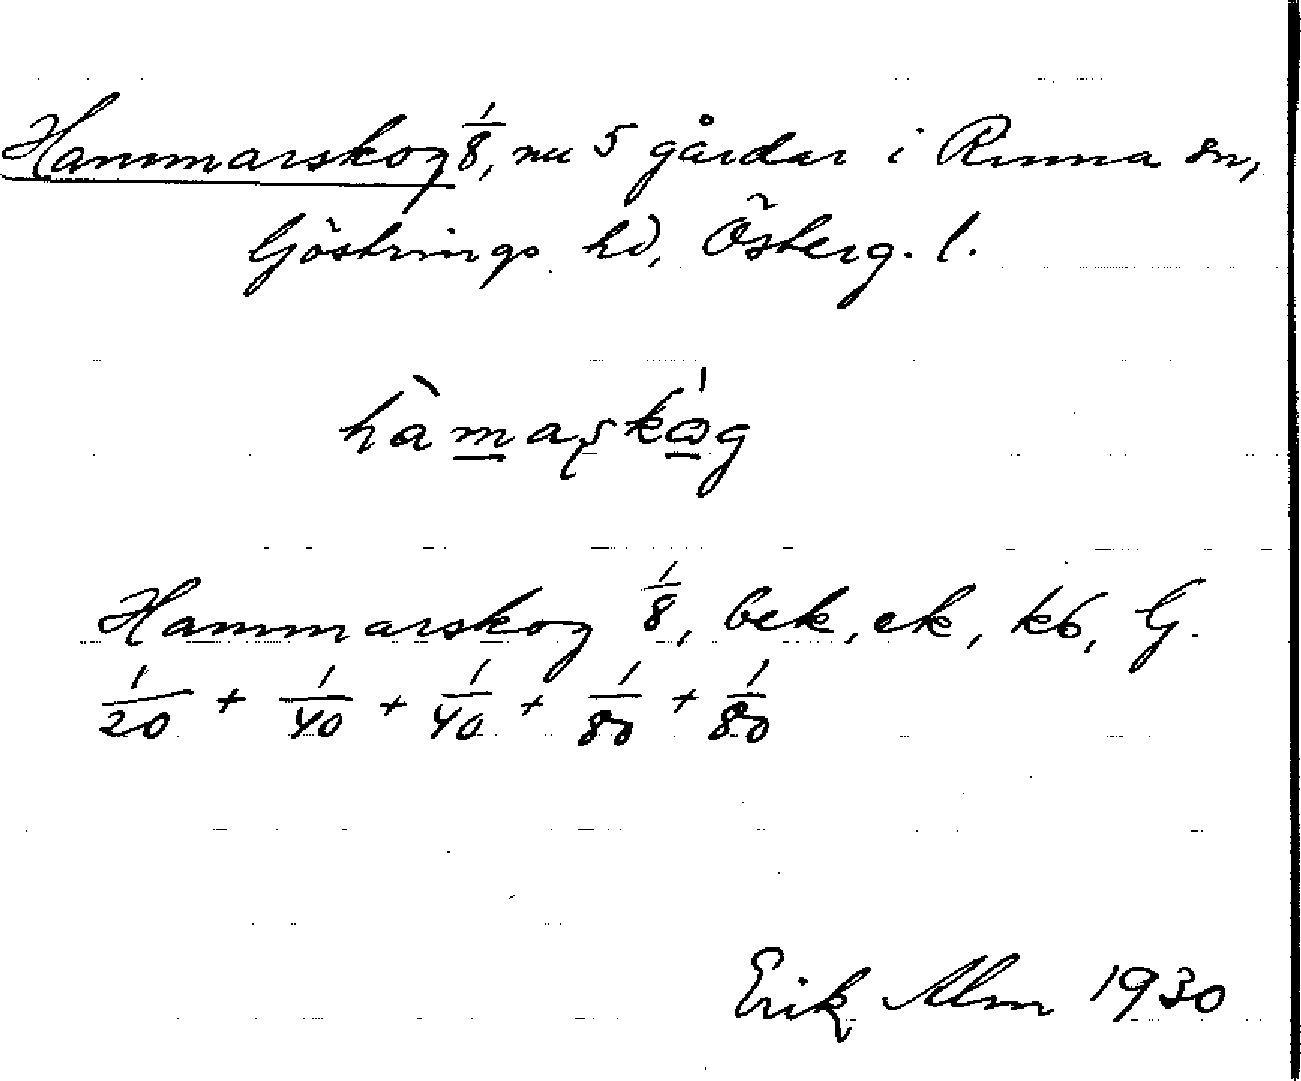 Hammarskog 1/8, nu 5 gårdar i Rinna sn,
Göstrings hd, Österg. l.
hàmaʂkóg
Hammarskog 1/8, bek, ek, kb, G.
1/20 + 1/40 + 1/40 + 1/80 + 1/80
Erik Alm 1930